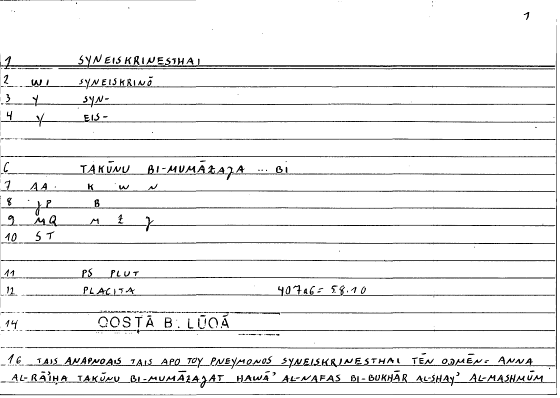 1
1 SYNEISKRINESTHAI
2 WI SYNEISKRINŌ
3 Y SYN-
4 Y EIS-
6 TAKŪNU BI-MUMĀZAǦA ... BI
7 AA K W N
8 ǦP B
9 MQ M Z Ǧ
10 ST
11 PS PLUT
12 PLACITA 407a6 = 58.10
14 QOSṬĀ B. LŪQĀ
16 TAIS ANAPNOAIS TAIS APO TOY PNEYMONOS SYNEISKRINESTHAI TĒN ODMĒN = ANNA
AL-RĀʾIḤA TAKŪNU BI-MUMĀZAǦAT HAWĀʾ AL-NAFAS BI-BUKHĀR AL-SHAYʾ AL-MASHMŪM